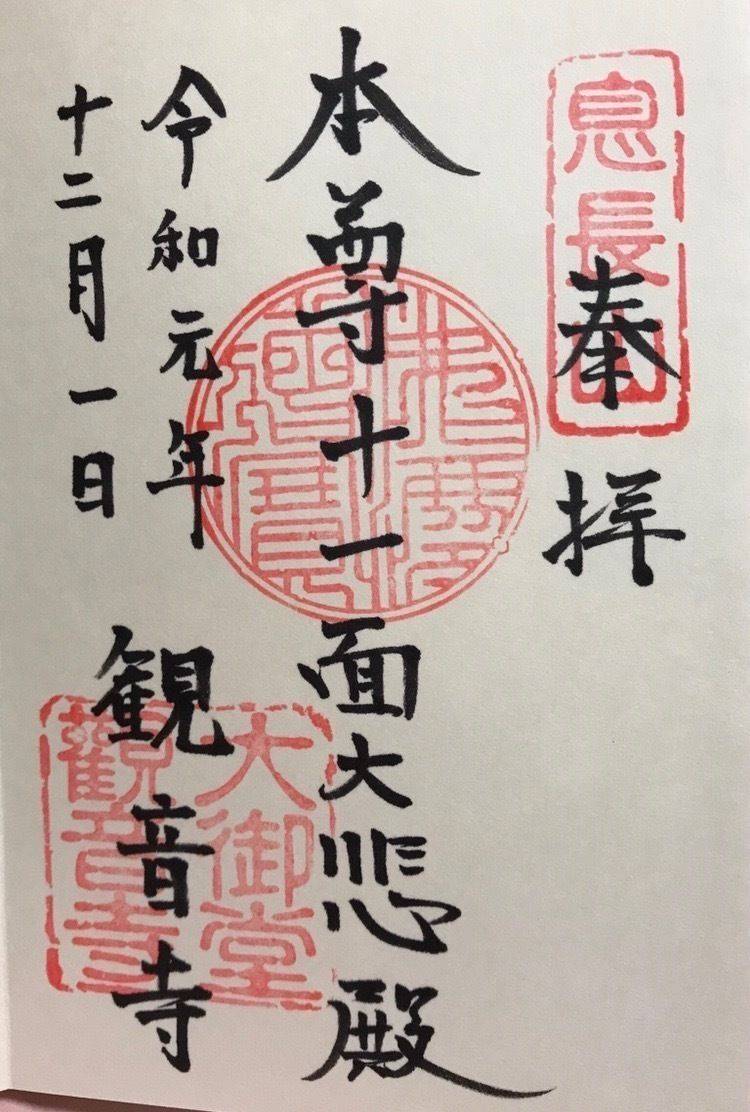 奉拝
息長山
本尊十一面大悲殿
佛法僧寶
令和元年
十二月一日
観音寺
大御堂
觀音寺